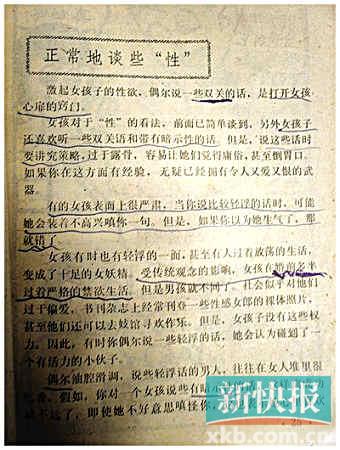 正常地谈些“性”
激起女孩子的性欲，偶尔说一些双关的话，是打开女孩
心扉的窍门。
女孩对于“性”的看法，前面已简单谈到，另外女孩子
还喜欢听一些双关语和带有暗示性的话。但是，说这些话时
要讲究策略，过于露骨，容易让她们觉得庸俗，甚至倒胃口。
如果你在这方面有经验，无疑已经拥有令人又爱又恨的武
器。
有的女孩表面上很严肃，当你说比较轻浮的话时，可能
她会装着不高兴嗔你一句。但是，如果你以为她生气了，那
就错了。
女孩有时也有轻浮的一面，甚至有人过着放荡的生活，
变成了十足的女妖精。受传统观念的影响，女孩在婚前多半
过着严格的禁欲生活。但是男孩就不同了。社会似乎对他们
过于偏爱，书刊杂志上经常刊登一些性感女郎的裸体照片，
甚至他们还可以去妓馆寻欢作乐。但是，女孩子没有这些权
力。因此，有时你偶尔说一些轻浮的话，她会认为碰到了一
个有活力的小伙子。
偶尔油腔滑调，说些轻浮话的男人，往往在女人堆里很
假如，你对一个女孩说些有暗示
即使她不好意思嗔怪你，
新快报
xkb.com.cn